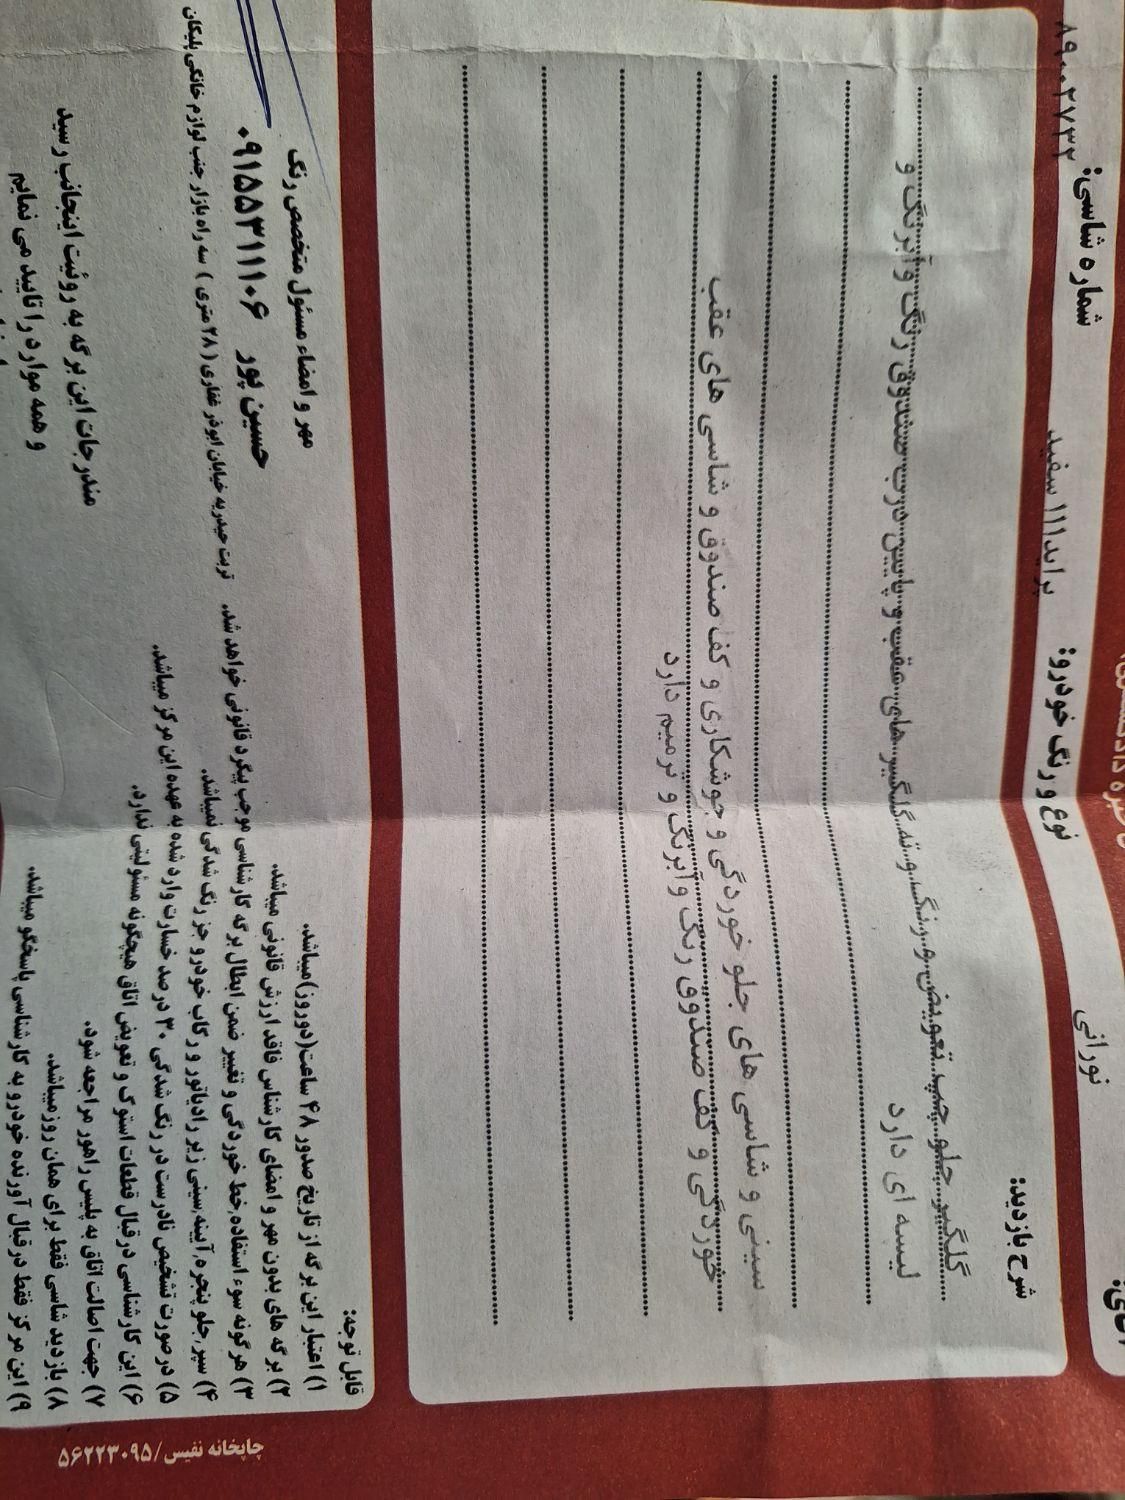 نورانی
نوع و رنگ خودرو: پراید ۱۱۱ سفید
شماره شاسی: ۸۹۰۰۲۷۳۲
شرح بازدید:
گلگیر جلو چپ تعویض و رنگ و ته گلگیر های عقب و پایین درب صندوق رنگ و آبرنگ و
لیسه ای دارد
سینی و شاسی های جلو خوردگی و جوشکاری و کف صندوق و شاسی های عقب
خوردگی و کف صندوق رنگ و آبرنگ و ترمیم دارد
قابل توجه:
۱) اعتبار این برگه از تاریخ صدور ۴۸ ساعت(دو روز)میباشد.
۲) برگه های بدون مهر و امضای کارشناس فاقد ارزش قانونی میباشد.
۳) هر گونه سوء استفاده,خط خوردگی و تغییر ضمن ابطال برگه کارشناسی موجب پیگرد قانونی خواهد شد.
۴) سپر,جلو پنجره,آیینه,سینی زیر رادیاتور و رکاب خودرو جز رنگ شدگی نمیباشد.
۵) در صورت تشخیص نادرست در رنگ شدگی ۳۰ درصد خسارت وارد شده به عهده این مرکز میباشد.
۶) این کارشناسی در قبال قطعات استوک و تعویض اتاق هیچگونه مسئولیتی ندارد.
۷) جهت اصالت اتاق به پلیس راهور مراجعه شود.
۸) بازدید شاسی فقط برای همان روز میباشد.
۹) این مرکز فقط در قبال آورنده خودرو به کارشناسی پاسخگو میباشد.
مهر و امضاء مسئول متخصص رنگ
حسین پور ۰۹۱۵۵۳۱۱۱۰۶
تربت حیدریه خیابان ابوذر غفاری (۲۸ متری ) سه راه بازار جنب لوازم خانگی پلیکان
مندرجات این برگه به روئیت اینجانب رسید
و همه موارد را تایید می نمایم
چاپخانه نفیس/۵۶۲۲۳۰۹۵